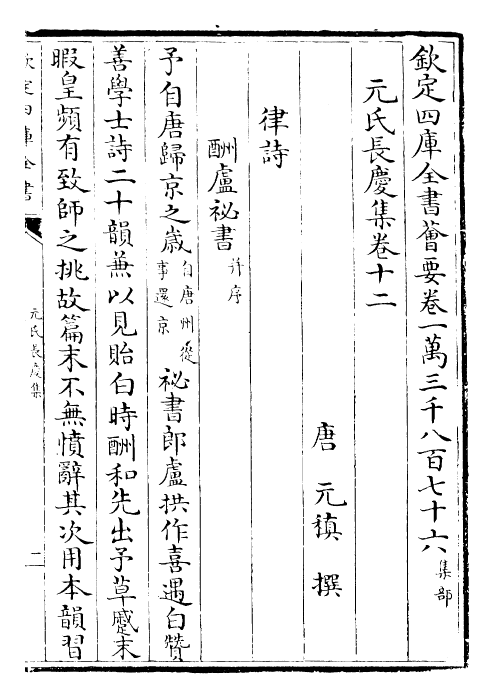 欽定四庫全書薈要卷一萬三千八百七十六 集部
元氏長慶集卷十二
唐 元稹 撰
律詩
酬盧祕書 并序
予自唐歸京之歲 自唐州從事還京 祕書郎盧拱作喜遇白贊
善學士詩二十韻兼以見貽白時酬和先出予草蹙未
暇皇頻有致師之挑故篇末不無憤辭其次用本韻習
欽定四庫全書
元氏長慶集
二